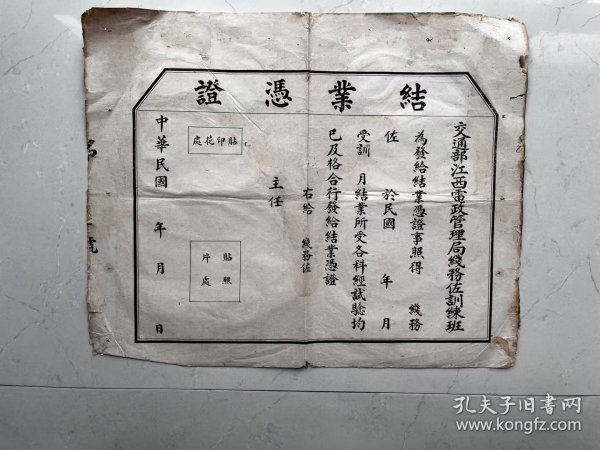 結業憑證
交通部江西電政管理局綫務佐訓練班
為發給結業憑證事照得　綫務
佐　於民國　年　月
受訓　月結業所受各科經試驗均
已及格合行發給結業憑證
右給　綫務佐
主任
貼印花處
貼照
片處
中華民國　年　月　日
號
孔夫子旧书网
www.kongfz.com